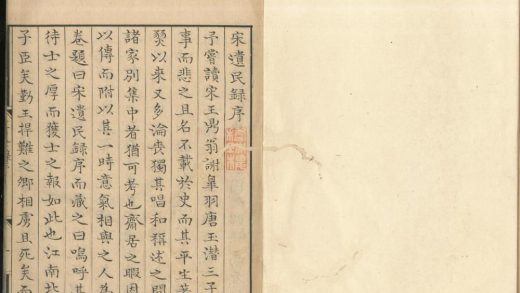 宋遺民錄序
予嘗讀宋王鼎翁謝皐羽唐玉潛三子
事而悲之且名不載於史而其平生著
爕以來又多淪喪獨其唱和稱述之間
諸家別集中者猶可考也齋居之暇因
以傳而附以其一時意氣相與之人為
卷題曰宋遺民錄序而藏之曰嗚呼其
待士之厚而獲士之報如此也江南北
子臣矣勤王捍難之鄉相虜且死矣而